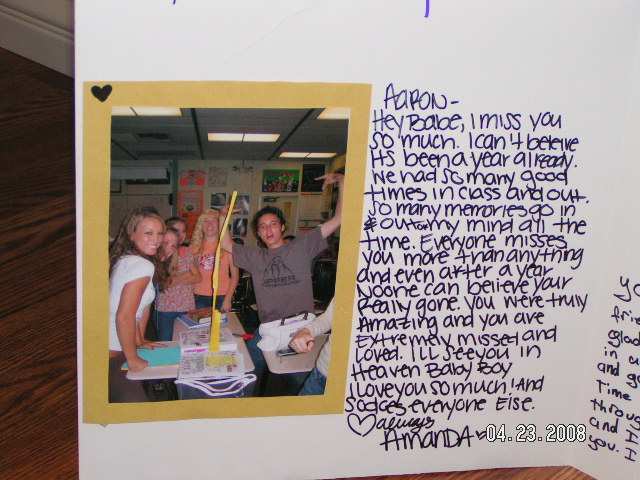 AARON-
Hey Babe, I miss you
so much. I can't beleive
its been a year already.
We had so many good
times in class and out.
So many memories go in
& out my mind all the
time. Everyone misses
you more than anything
and even after a year
Noone can believe your
Really gone. You were truly
Amazing and you are
Extremely missed and
loved. I'LL see you in
Heaven Baby Boy
I love you so much! And
So does everyone Else.
always
AMANDA
and
Time
through
and
you.
04.23.2008